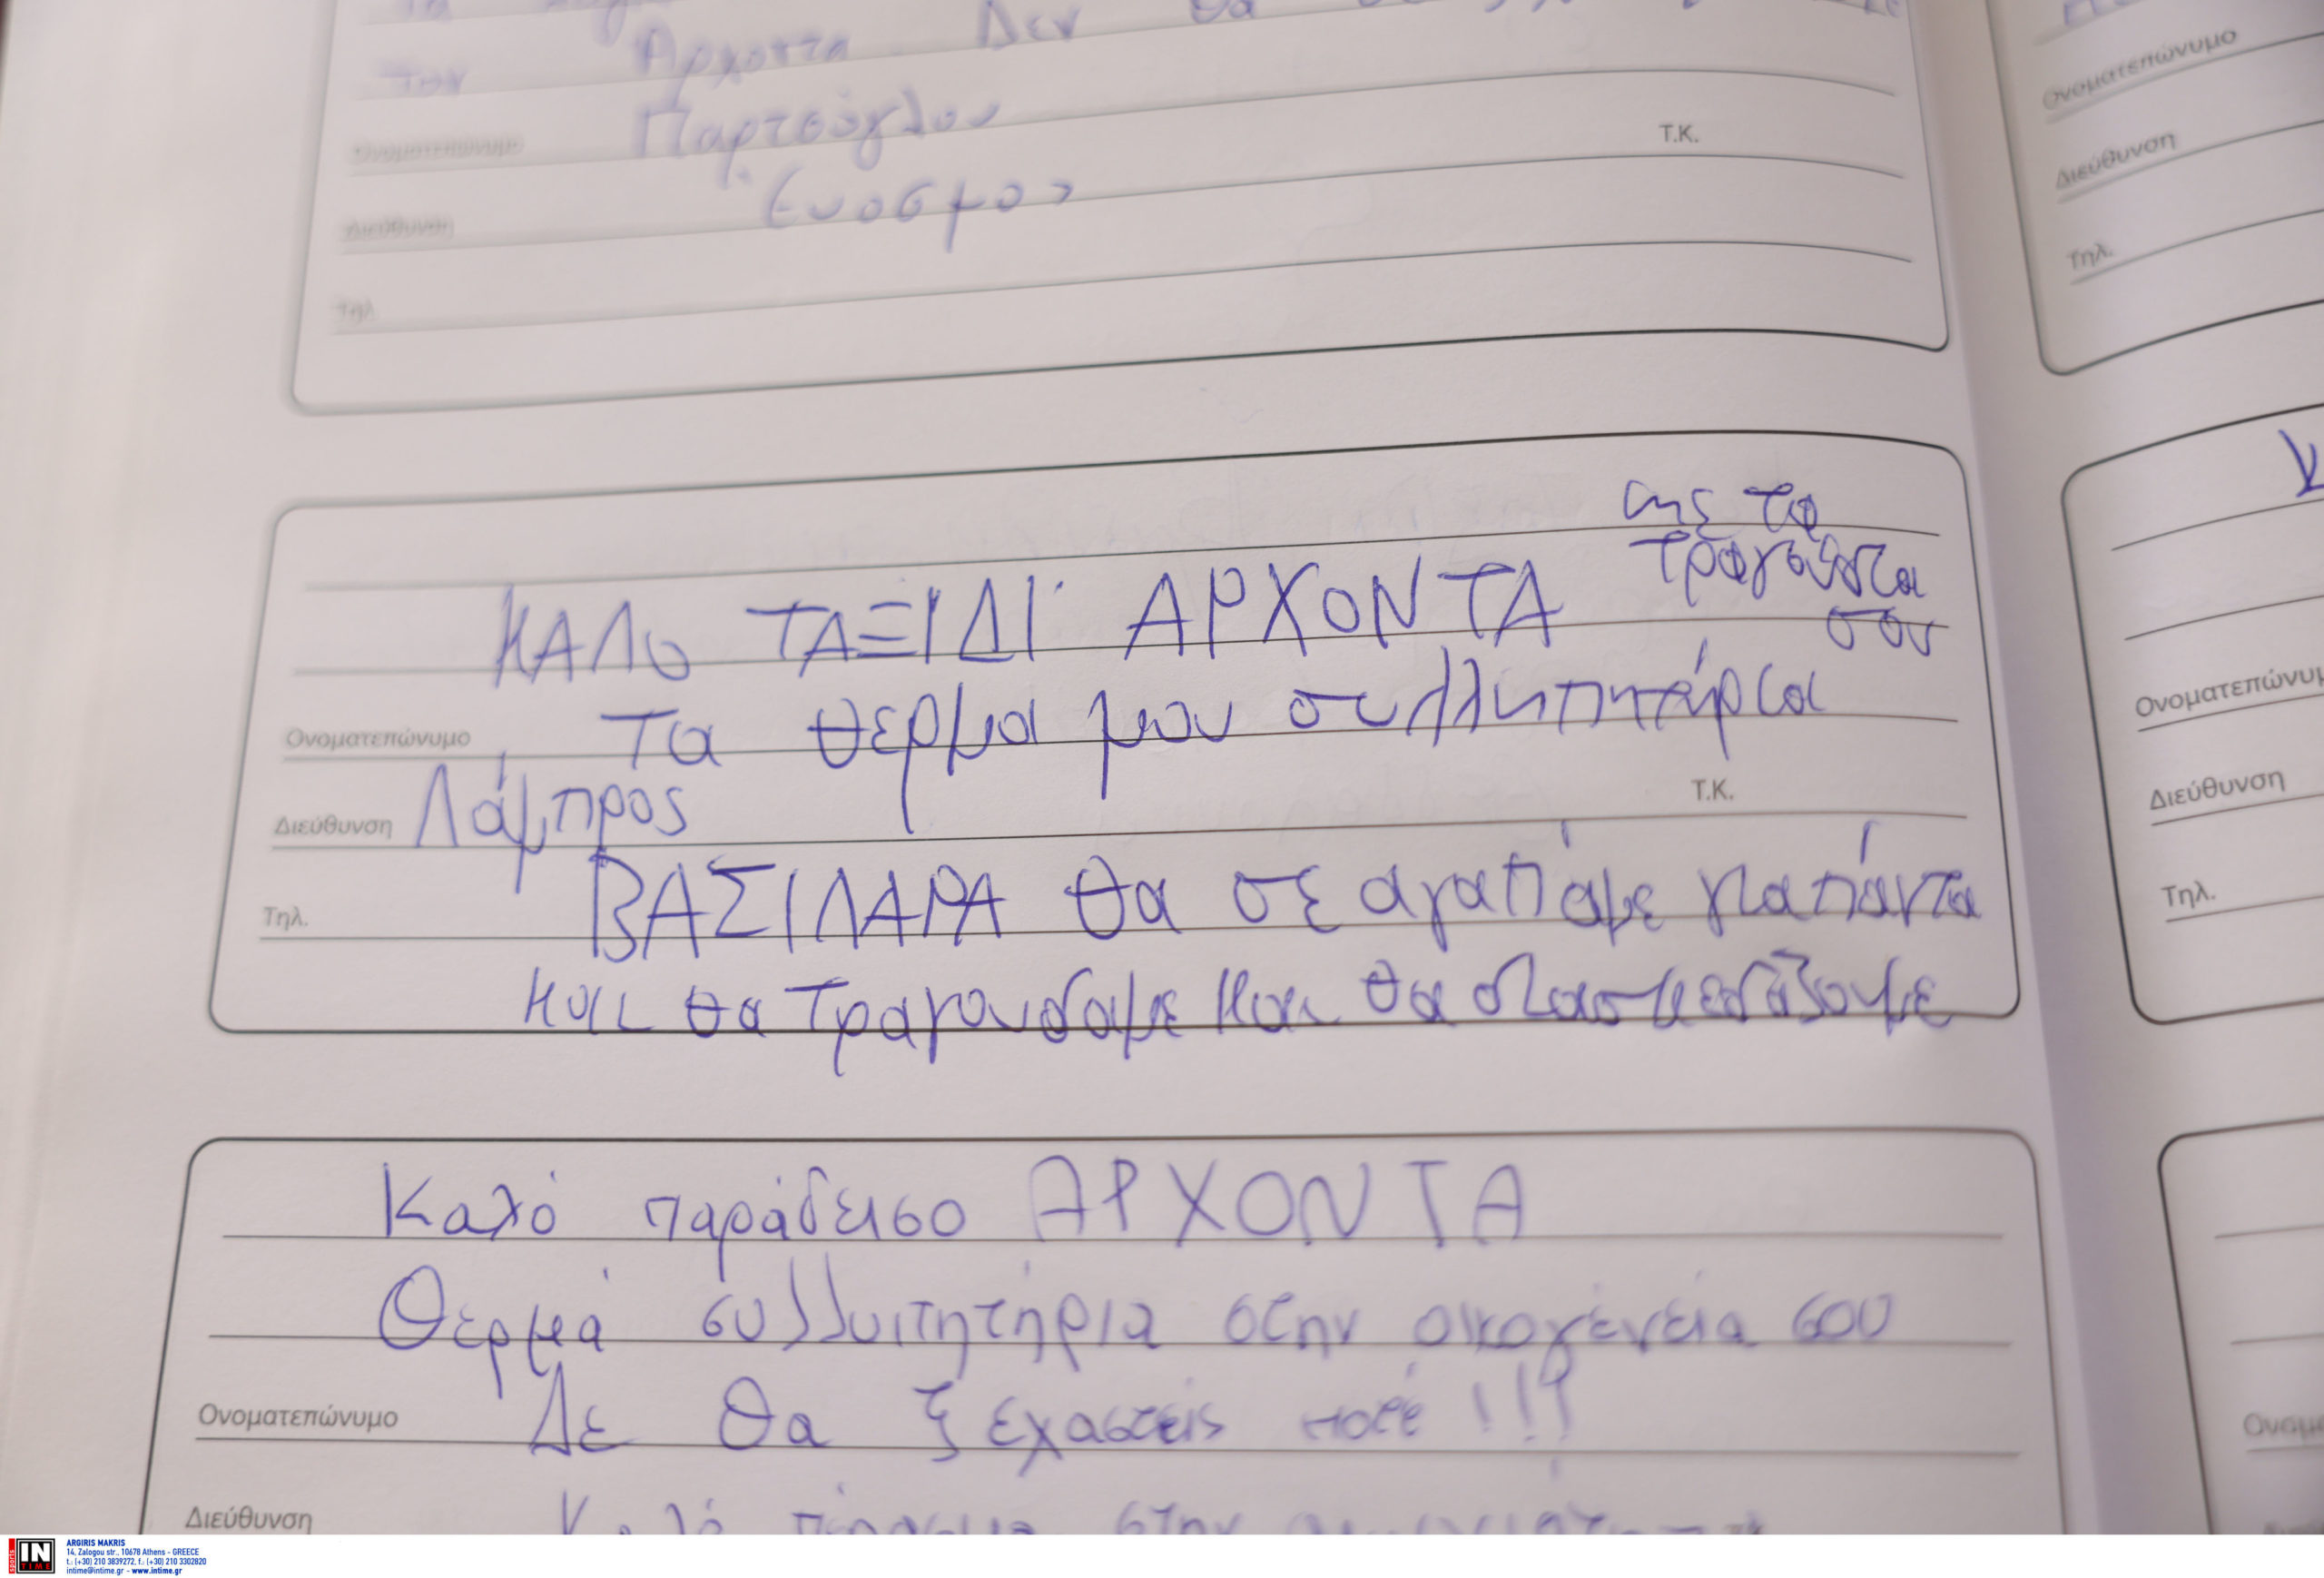 την Άρχοντα Δεν θα
Ονοματεπώνυμο Παρτσόγλου
Τ.Κ.
Διεύθυνση Ευοσμος
Τηλ.
με τα
τραγούδια
σου
ΚΑΛΟ ΤΑΞΙΔΙ ΑΡΧΟΝΤΑ
Ονοματεπώνυμο Τα θερμα μου συλληπητήρια
Διεύθυνση Λάμπρος Τ.Κ.
Τηλ. ΒΑΣΙΛΑΡΑ θα σε αγαπάμε για πάντα
και θα τραγουδαμε και θα διασκεδάζουμε
Καλό παράδεισο ΑΡΧΟΝΤΑ
Θερμά συλλυπητήρια στην οικογένεια σου
Ονοματεπώνυμο Δε θα ξεχαστείς ποτέ !!!
Διεύθυνση Καλό στην
Ονοματεπώνυμο
Διεύθυνση
Τηλ.
Διεύθυνση
Τηλ.
sports
IN
TIME
ARGIRIS MAKRIS
14, Zalogou str., 10678 Athens - GREECE
t.: (+30) 210 3839272, f.: (+30) 210 3302820
intime@intime.gr - www.intime.gr